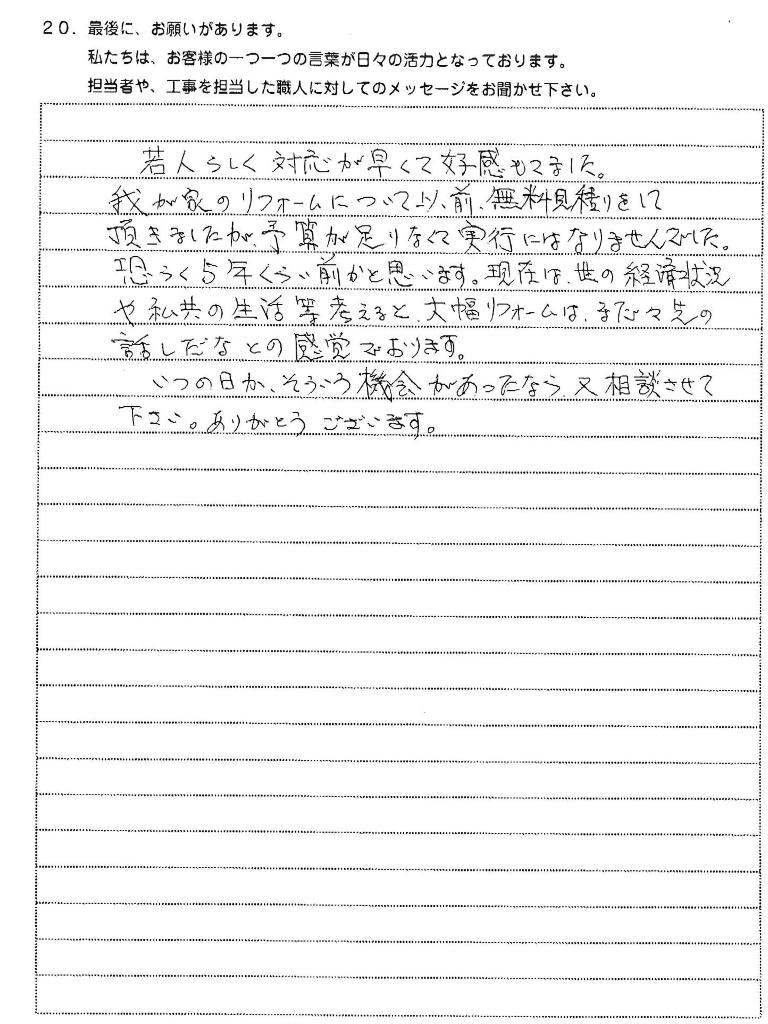 20．最後に、お願いがあります。
私たちは、お客様の一つ一つの言葉が日々の活力となっております。
担当者や、工事を担当した職人に対してのメッセージをお聞かせ下さい。
若人らしく対応が早くて好感もてました。
我が家のリフォームについて以前、無料見積りをして
頂きましたが、予算が足りなくて実行にはなりませんでした。
恐らく5年くらい前かと思います。現在は、世の経済状況
や私共の生活等考えると、大幅リフォームは、まだ々先の
話しだなとの感覚でおります。
いつの日か、そういう機会があったなら、又相談させて
下さい。ありがとうございます。